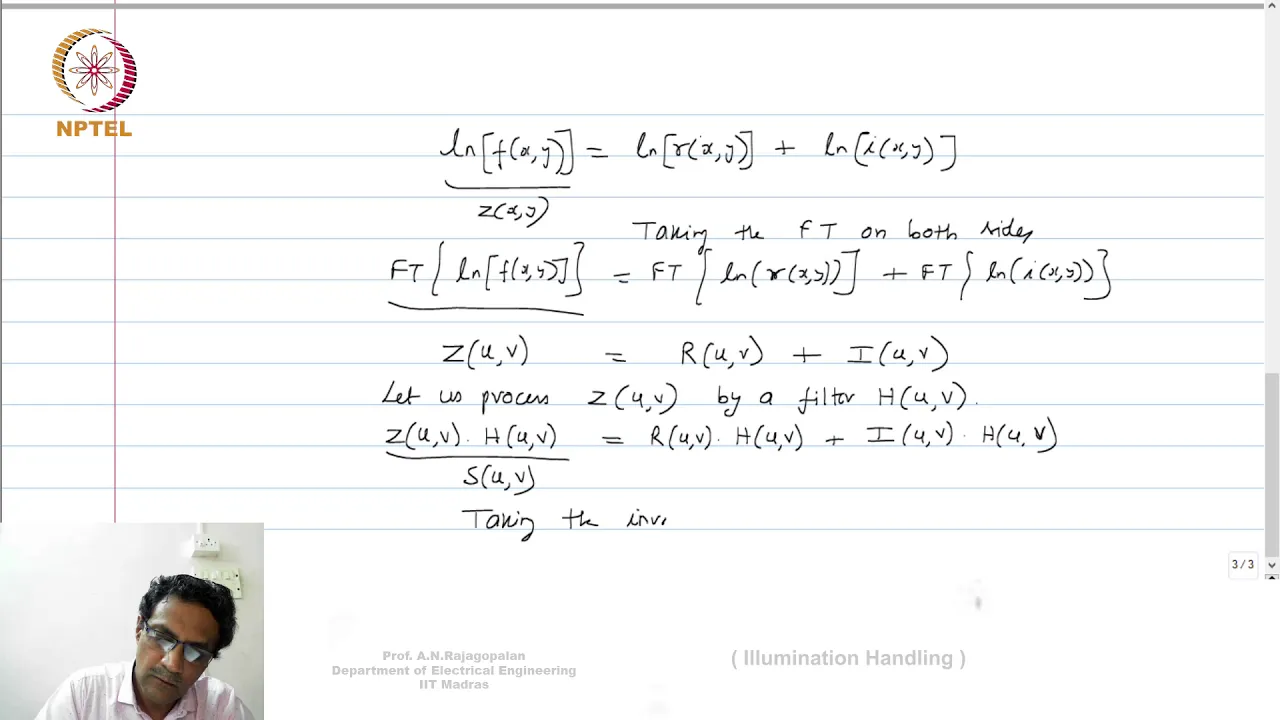 NPTEL
ln[f(x,y)] = ln[r(x,y)] + ln[i(x,y)]
z(x,y)
Taking the FT on both sides
FT{ln[f(x,y)]} = FT{ln(r(x,y))} + FT{ln(i(x,y))}
Z(u,v) = R(u,v) + I(u,v)
Let us process Z(u,v) by a filter H(u,v).
Z(u,v). H(u,v) = R(u,v). H(u,v) + I(u,v). H(u,v)
S(u,v)
Taking the inve
3/3
Prof. A.N.Rajagopalan
Department of Electrical Engineering
IIT Madras
( Illumination Handling )